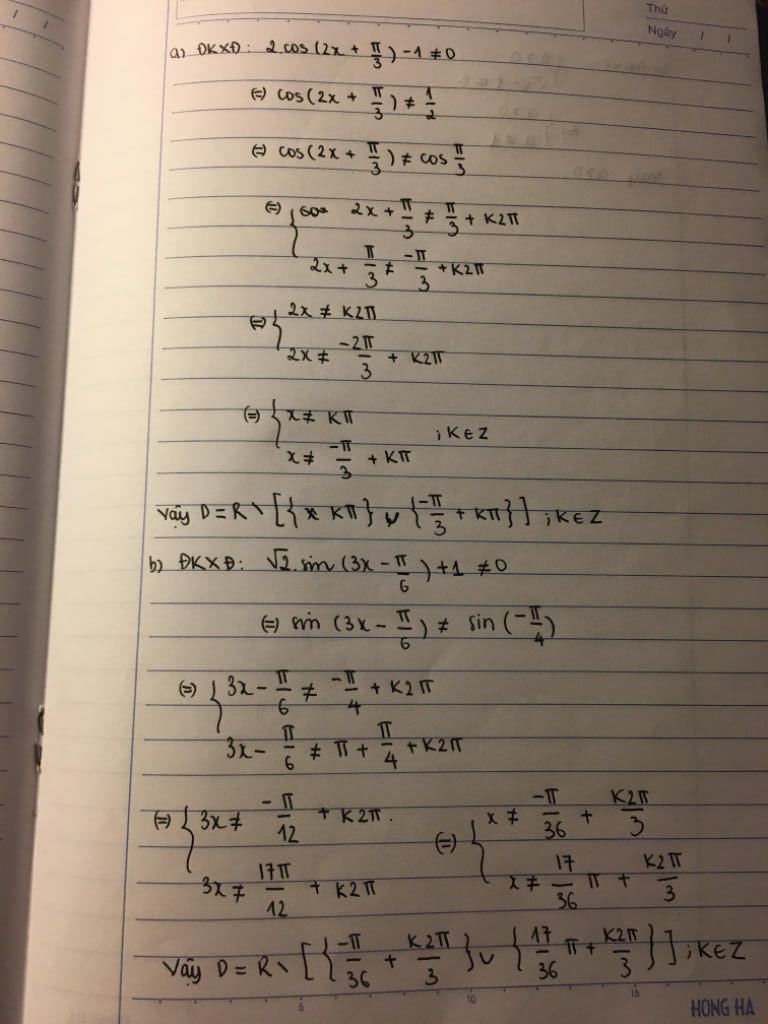 Thứ
Ngày / /
a) ĐKXĐ: 2cos(2x + π/3) - 1 ≠ 0
(=) cos(2x + π/3) ≠ 1/2
(=) cos(2x + π/3) ≠ cos π/3
(=) { 2x + π/3 ≠ π/3 + K2π
2x + π/3 ≠ -π/3 + K2π
(=) { 2x ≠ K2π
2x ≠ -2π/3 + K2π
(=) { x ≠ Kπ
x ≠ -π/3 + Kπ ; K∈Z
Vậy D = R \ [{Kπ} ∪ {-π/3 + Kπ}] ; K∈Z
b) ĐKXĐ: √2.sin(3x - π/6) + 1 ≠ 0
(=) sin(3x - π/6) ≠ sin(-π/4)
(=) { 3x - π/6 ≠ -π/4 + K2π
3x - π/6 ≠ π + π/4 + K2π
(=) { 3x ≠ -π/12 + K2π. (=) { x ≠ -π/36 + K2π/3
3x ≠ 17π/12 + K2π x ≠ 17/36 π + K2π/3
Vậy D = R \ [{-π/36 + K2π/3} ∪ {17/36 π + K2π/3}] ; K∈Z
6 10 16
HONG HA